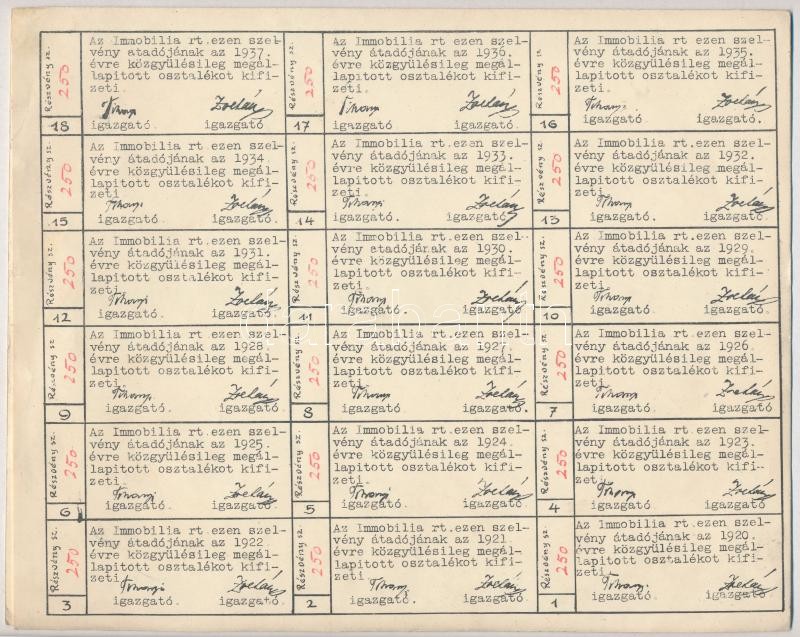 Részvény sz.
250
18
Az Immobilia rt.ezen szel-
vény átadójának az 1937.
évre közgyülésileg megál-
lapitott osztalékot kifi-
zeti.
Tihanyi Zoelán
igazgató. igazgató.
Részvény sz.
250
17
Az Immobilia rt ezen szel-
vény átadójának az 1936.
évre közgyülésileg megál-
lapitott osztalékot kifi-
zeti
igazgató igazgató.
Részvény sz.
250
16
Az Immobilia rt ezen szel-
vény átadójának az 1935.
évre közgyülésileg megál-
lapitott osztalékot kifi-
zeti.
igazgató igazgató.
Részvény sz.
250
15
Az Immobilia rt ezen szel-
vény átadójának az 1934.
évre közgyülésileg megál-
lapitott osztalékot kifi-
zeti
igazgató. igazgató.
Részvény sz.
250
14
Az Immobilia rt ezen szel-
vény átadójának az 1933.
évre közgyülésileg megál-
lapitott osztalékot kifi-
zeti.
igazgató. igazgató.
Részvény sz.
250
13
Az Immobilia rt ezen szel-
vény átadójának az 1932.
évre közgyülésileg megál-
lapitott osztalékot kifi-
zeti.
igazgató. igazgató.
Részvény sz.
250
12
Az Immobilia rt ezen szel-
vény átadójának az 1931.
évre közgyülésileg megál-
lapitott osztalékot kifi-
zeti
igazgató. igazgató.
Részvény sz.
250
11
Az Immobilia rt.ezen szel-
vény átadójának az 1930.
évre közgyülésileg megál-
lapitott osztalékot kifi-
zeti.
igazgató. igazgató.
Részvény sz.
250
10
Az Immobilia rt.ezen szel-
vény átadójának az 1929.
évre közgyülésileg megál-
lapitott osztalékot kifi-
zeti
igazgató. igazgató.
Részvény sz.
250
9
Az Immobilia rt ezen szel-
vény átadójának az 1928.
évre közgyülésileg megál-
lapitott osztalékot kifi-
zeti
igazgató. igazgató.
Részvény sz.
250
8
Az Immobilia rt ezen szel-
vény átadójának az 1927.
évre közgyülésileg megál-
lapitott osztalékot kifi-
zeti
igazgató. igazgató.
Részvény sz.
250
7
Az Immobilia rt ezen szel-
vény átadójának az 1926.
évre közgyülésileg megál-
lapitott osztalékot kifi-
zeti
igazgató. igazgató.
Részvény sz.
250
6
Az Immobilia rt ezen szel-
vény átadójának az 1925.
évre közgyülésileg megál-
lapitott osztalékot kifi-
zeti
igazgató igazgató
Részvény sz.
250
5
Az Immobilia rt.ezen szel-
vény átadójának az 1924.
évre közgyülésileg megál-
lapitott osztalékot kifi-
zeti.
igazgató. igazgató.
Részvény sz.
250
4
Az Immobilia rt ezen szel-
vény átadójának az 1923.
évre közgyülésileg megál-
lapitott osztalékot kifi-
zeti.
igazgató igazgató
Részvény sz.
250
3
Az Immobilia rt ezen szel-
vény átadójának az 1922
évre közgyülésileg megál-
lapitott osztalékot kifi-
zeti
igazgató. igazgató.
Részvény sz.
250
2
Az Immobilia rt ezen szel-
vény átadójának az 1921
évre közgyülésileg megál-
lapitott osztalékot kifi-
zeti.
igazgató. igazgató.
Részvény sz.
250
1
Az Immobilia rt ezen szel-
vény átadójának az 1920.
évre közgyülésileg megál-
lapitott osztalékot kifi-
zeti
igazgató igazgató.